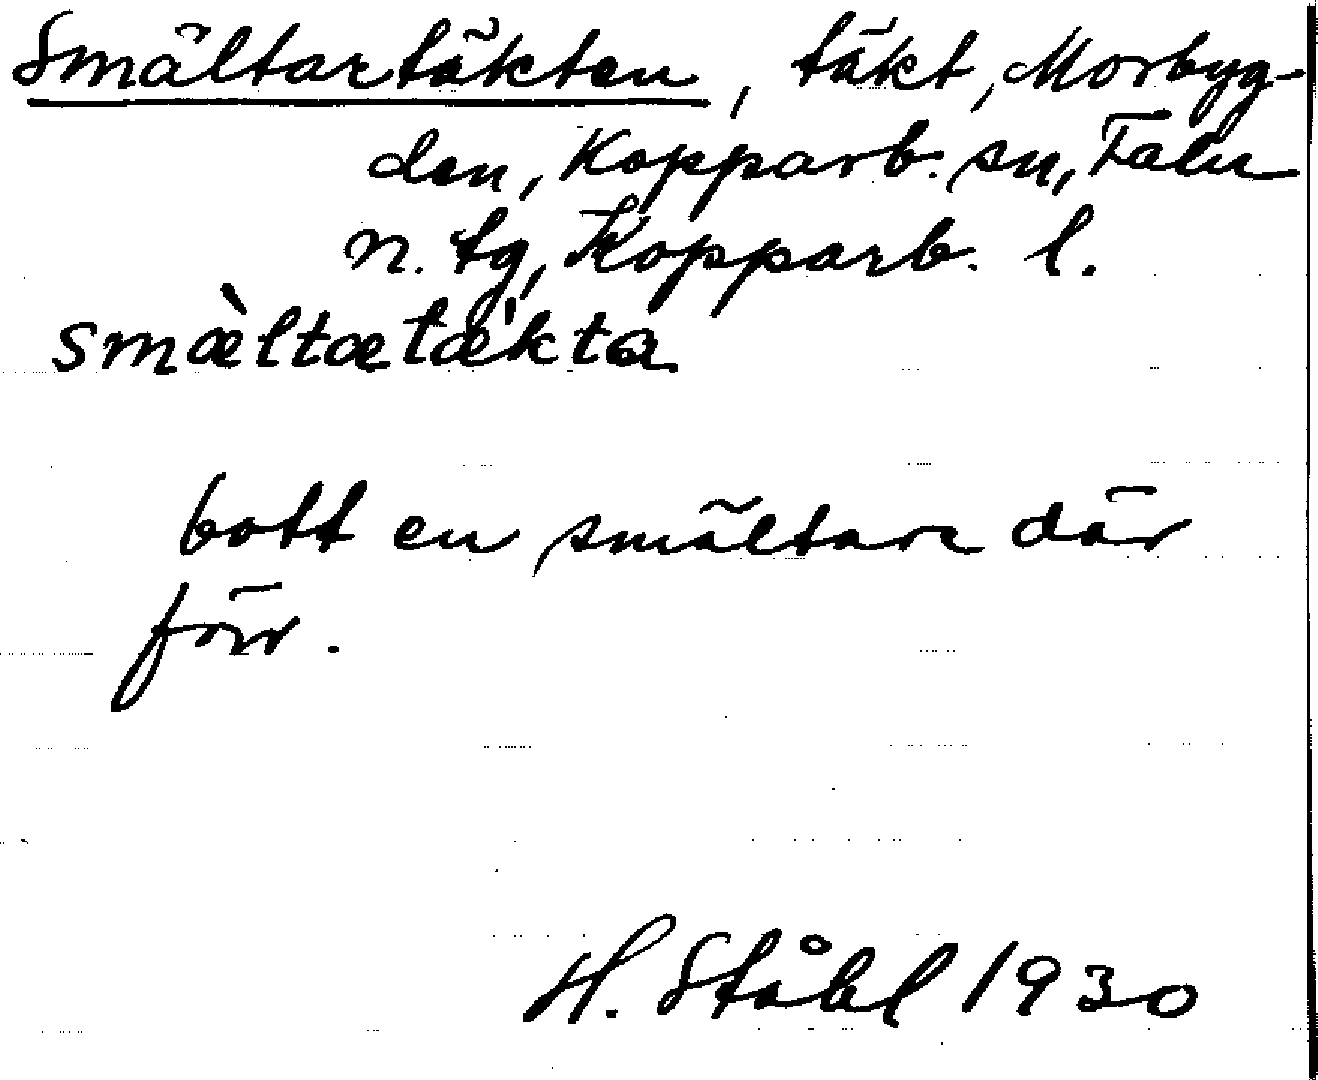 Smältartäkten, täkt, Morbyg-
den, Kopparb. sn, Falu
n. tg, Kopparb. l.
smæ̀ltætæ̍kta
bott en smältare där
förr.
H. Ståhl 1930